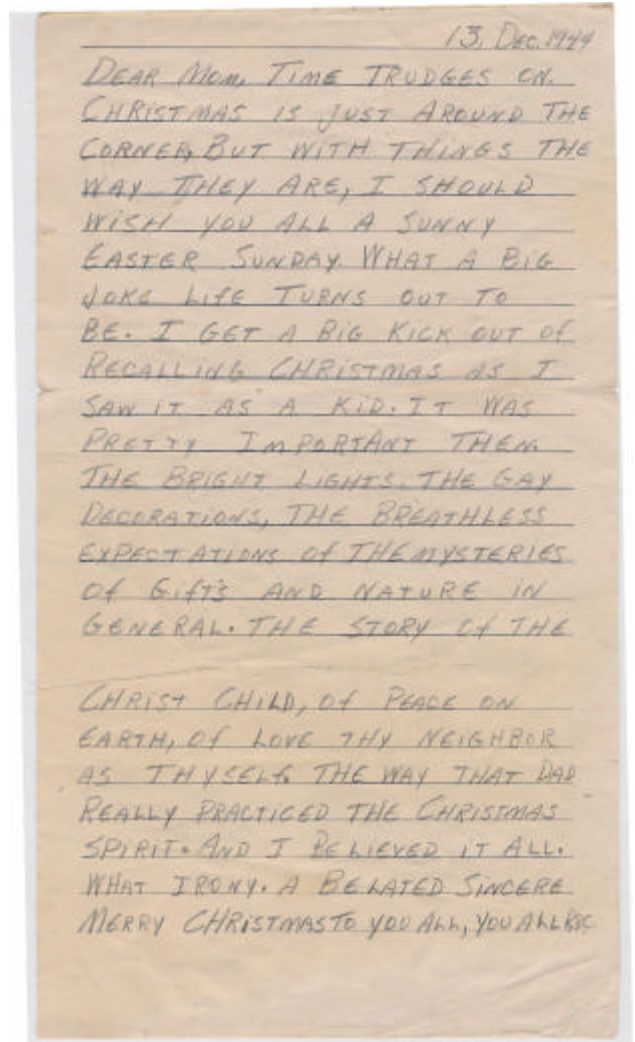 13, Dec. 1944
DEAR MOM, TIME TRUDGES ON.
CHRISTMAS IS JUST AROUND THE
CORNER, BUT WITH THINGS THE
WAY THEY ARE, I SHOULD
WISH YOU ALL A SUNNY
EASTER SUNDAY. WHAT A BIG
JOKE LIFE TURNS OUT TO
BE. I GET A BIG KICK OUT OF
RECALLING CHRISTMAS AS I
SAW IT AS A KID. IT WAS
PRETTY IMPORTANT THEN.
THE BRIGHT LIGHTS. THE GAY
DECORATIONS, THE BREATHLESS
EXPECTATIONS OF THE MYSTERIES
OF GIFTS AND NATURE IN
GENERAL. THE STORY OF THE
CHRIST CHILD, OF PEACE ON
EARTH, OF LOVE THY NEIGHBOR
AS THYSELF. THE WAY THAT DAD
REALLY PRACTICED THE CHRISTMAS
SPIRIT. AND I BELIEVED IT ALL.
WHAT IRONY. A BELATED SINCERE
MERRY CHRISTMAS TO YOU ALL, YOU ALL